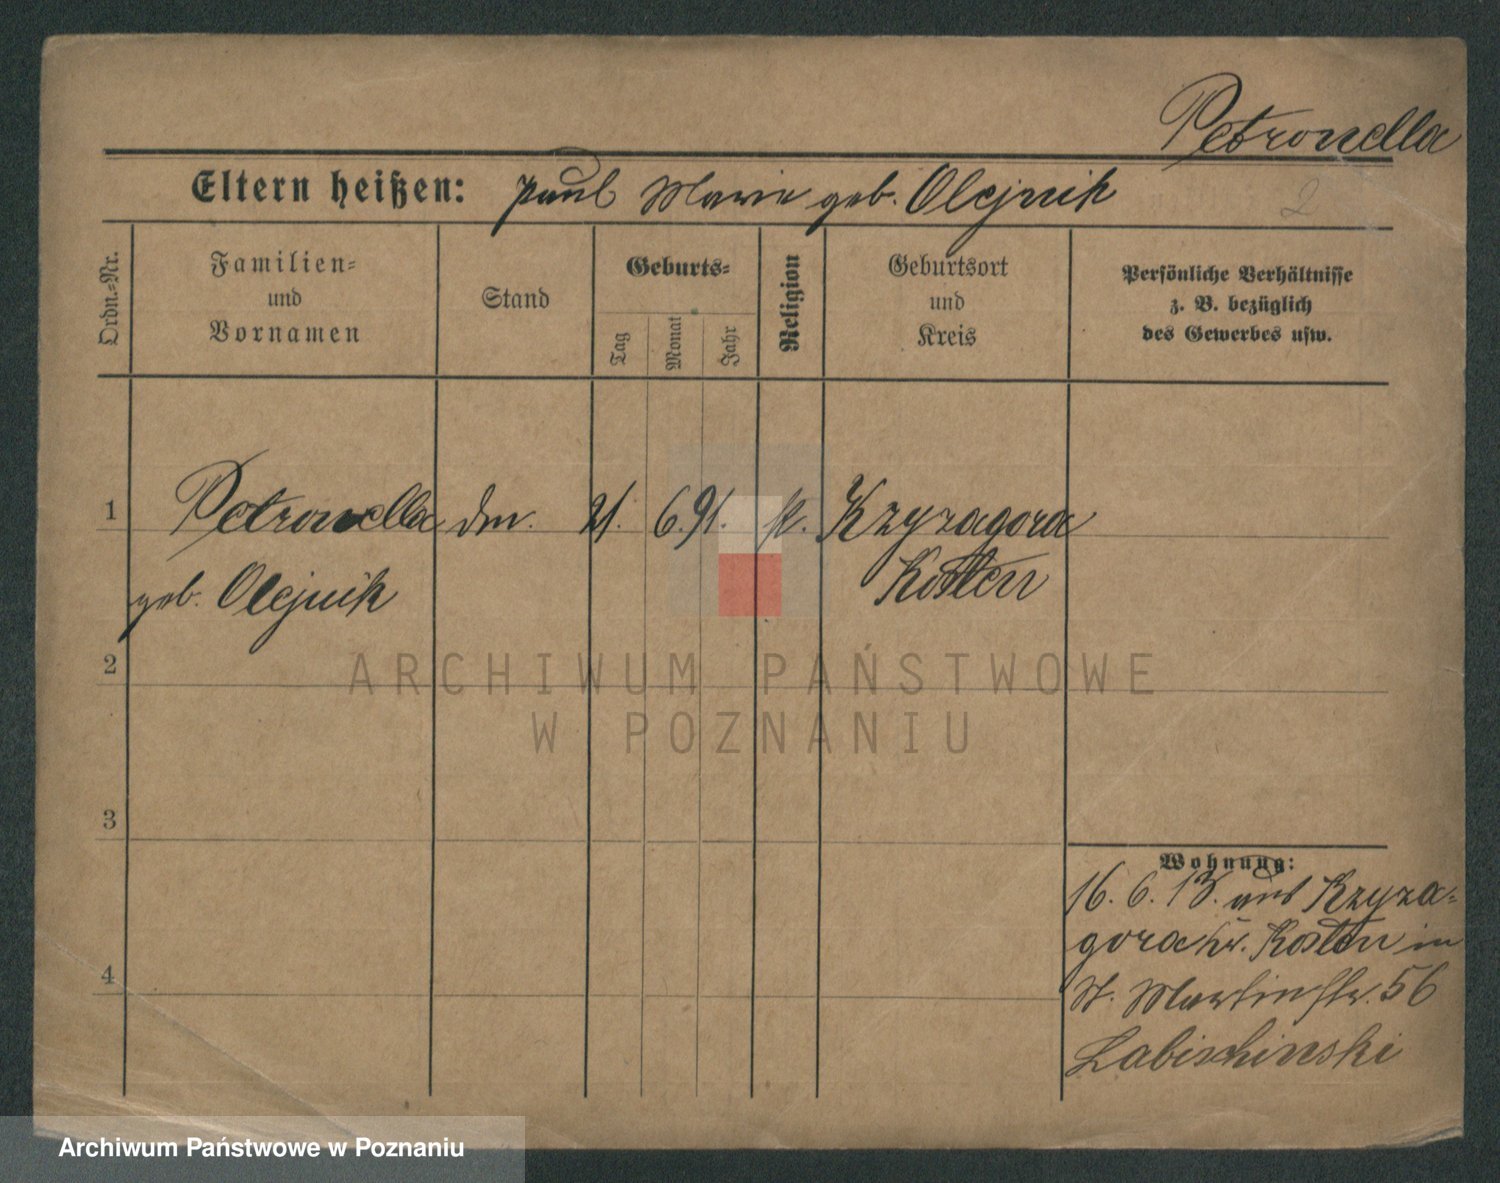 Petronella
Eltern heißen: Paul Marie geb. Olejnik
2
Ordn.-Nr.
Familien-
und
Vornamen
Stand
Geburts-
Tag
Monat
Jahr
Religion
Geburtsort
und
Kreis
Persönliche Verhältnisse
z. B. bezüglich
des Gewerbes usw.
1 Petronella 21. 6. 91. k. Krzyzagora
geb. Olejnik Kosten
2
3
4
Wohnung:
16. 6. 13. aus Krzyza-
gora Kr. Kosten in
St. Martinstr. 56
Labischinski
ARCHIWUM PAŃSTWOWE
W POZNANIU
Archiwum Państwowe w Poznaniu